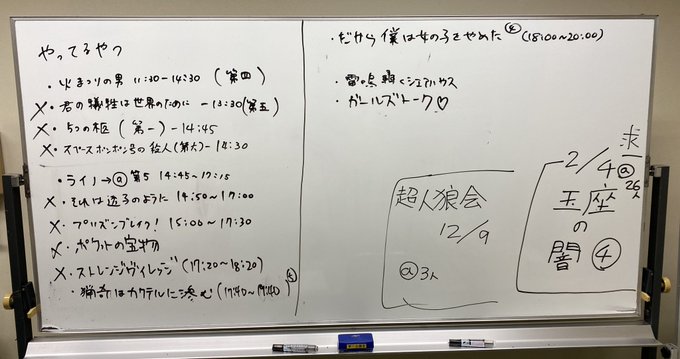 やってるやつ
・火まつりの男 11:30-14:30 (第四)
×・君の犠牲は世界のために -13:30(第五)
×・5つの柩 (第一)-14:45
×・スペースポンポン号の殺人(第六)-14:30
・ライノ→ⓐ 第5 14:45~17:15
×・それは造子のように 14:50~17:00
×・プリズンブレイク! 15:00~17:30
×・ポケットの宝物
×・ストレンジヴィレッジ (17:20~18:20)
・猟奇はカクテルに
・だから僕は女の子をやめた④ (18:00~20:00)
・雷鳴轟くシェアハウス
・ガールズトーク♡
超人狼会
12/9
ⓐ3人
求
2/4ⓐ
26人
玉座
の
闇 ④